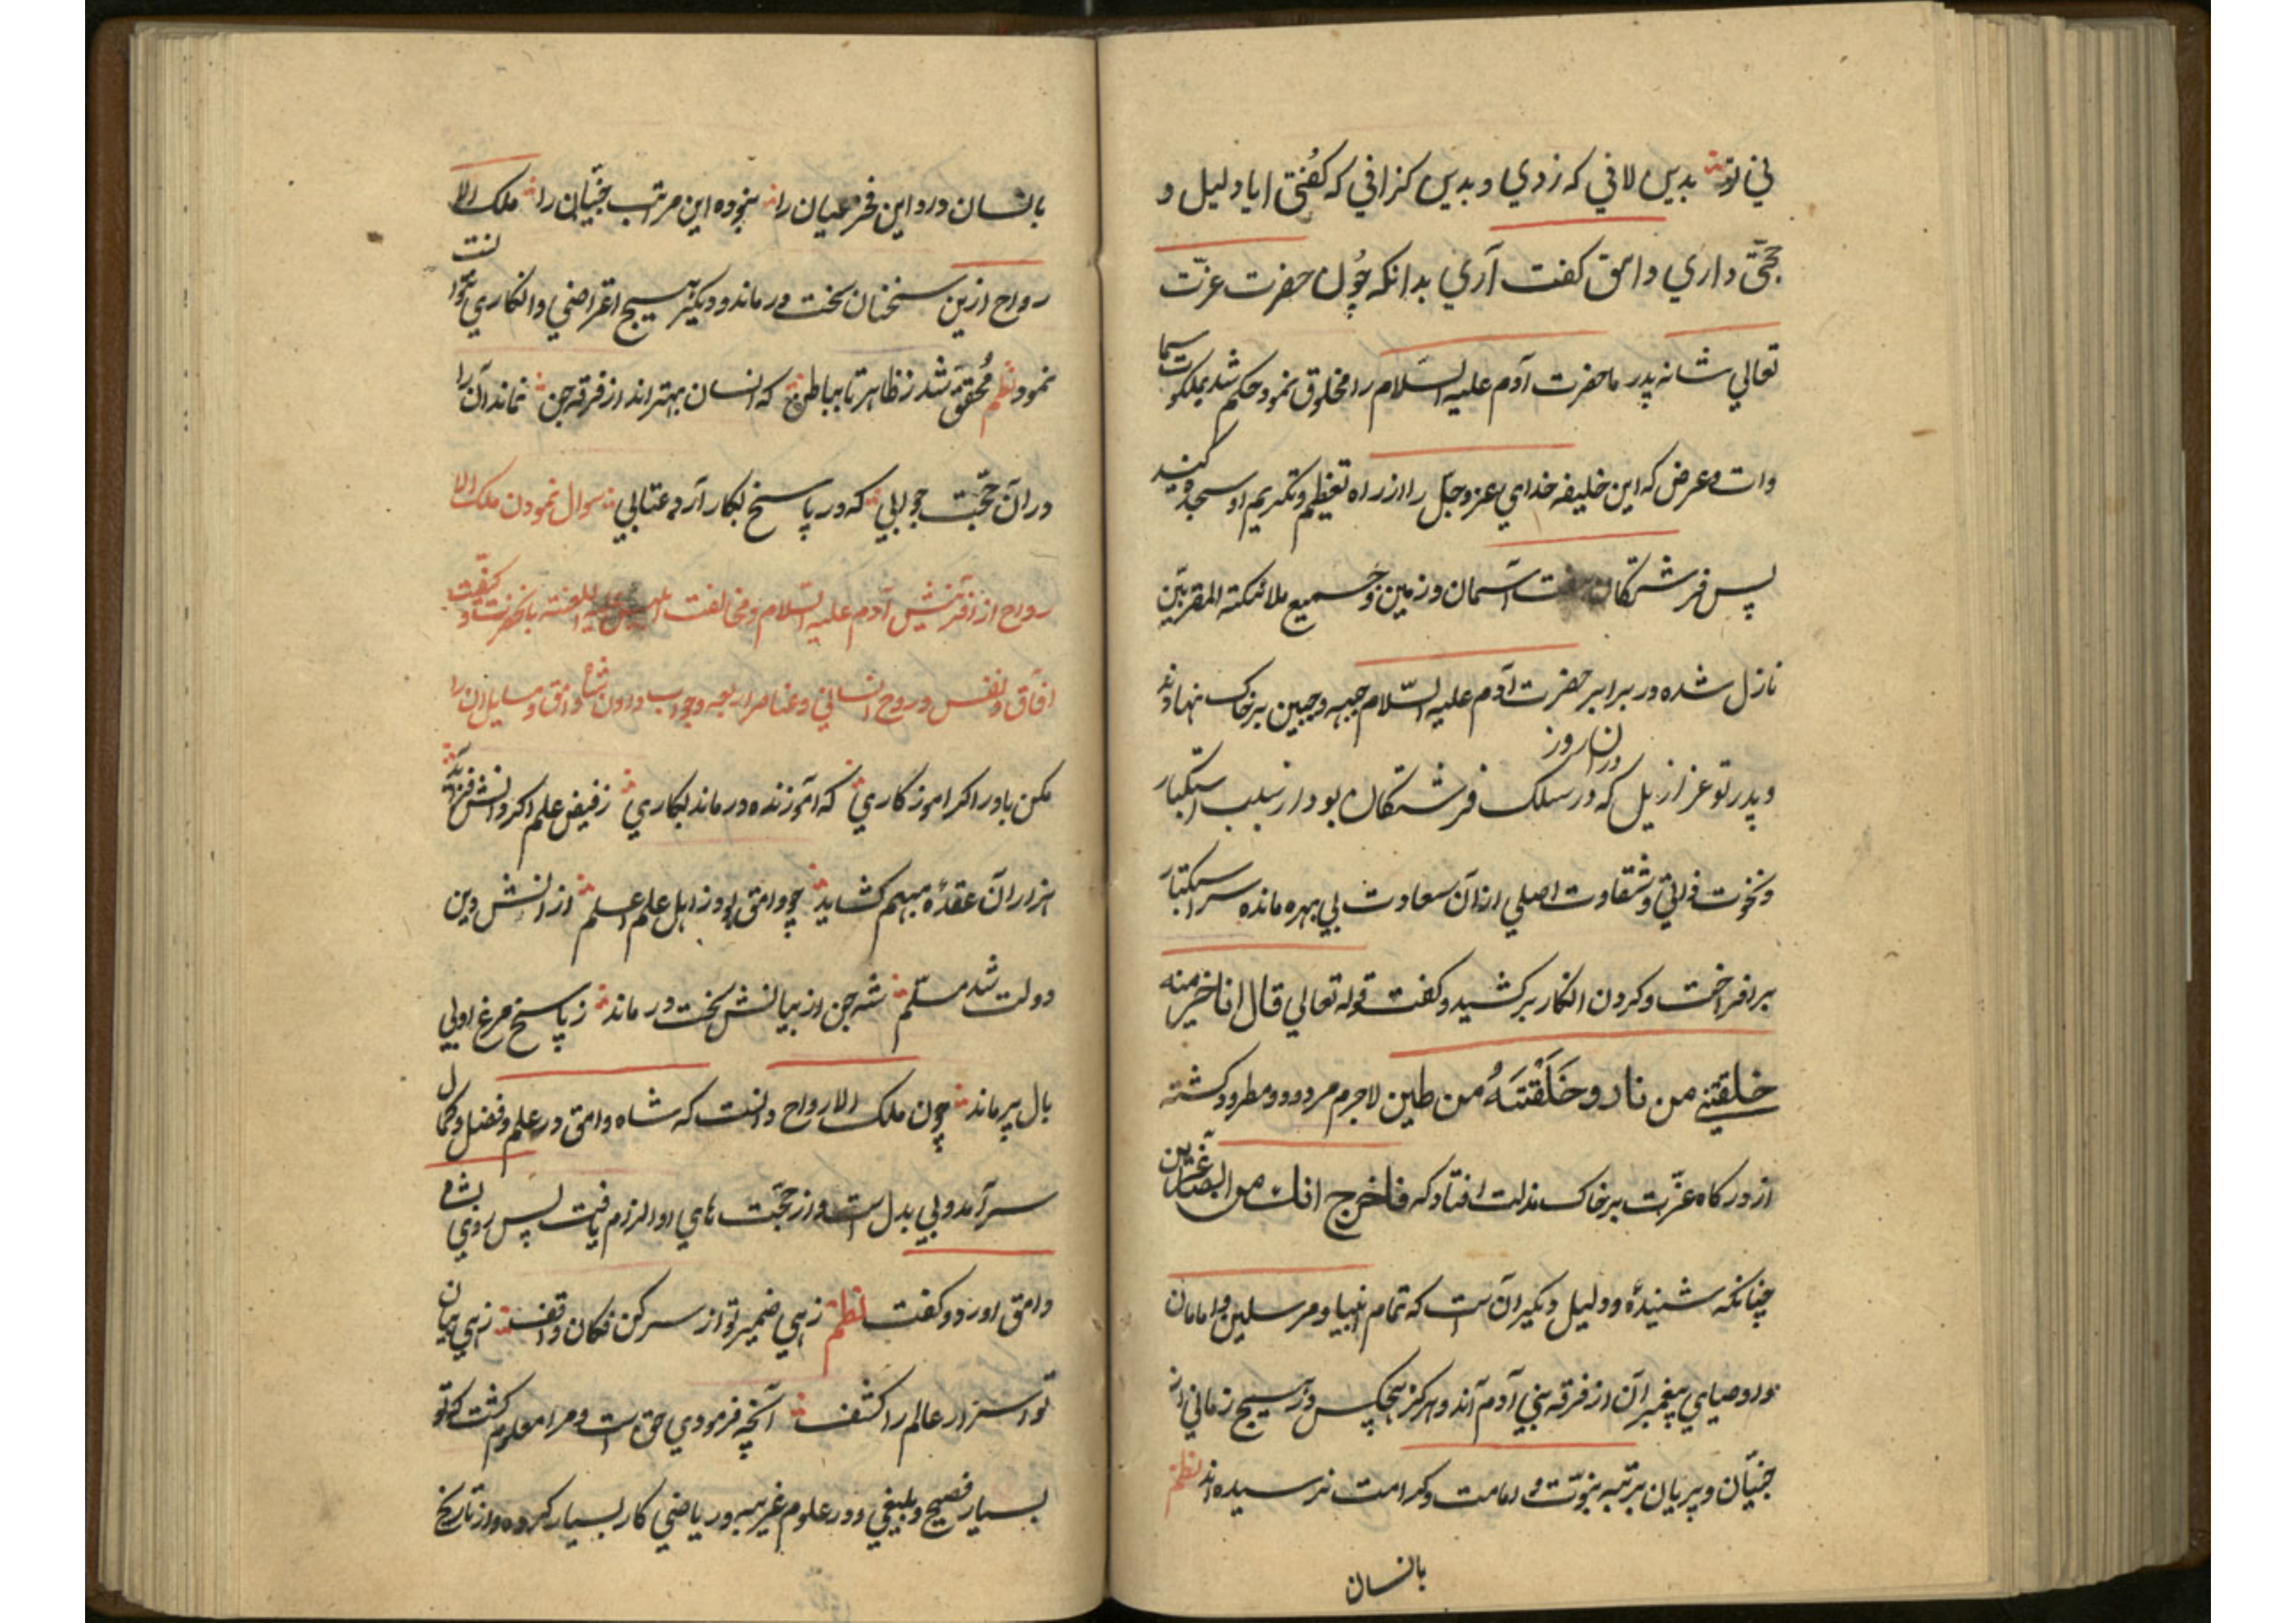 بني تو بدين لافي که زدي و بدين کزافي که کفتي ايا دليل و
حجتي داري وامق کفت آري بدانکه چون حضرت عزت
تعالي شانه پدر ما حضرت آدم عليه السلام را مخلوق نمود حکم شد بملکوت سما
وات و عرض که اين خليفه خداي عز و جل را از راه تعظيم و تکريم او سجده کنيد
پس فرشتکان هفت آسمان و زمين و جميع ملائکته المقربين
نازل شده در برابر حضرت آدم عليه السلام جبهه و جبين بر خاک نهادند
و پدر تو عزازيل که دران روز در سلک فرشتکان بود از سبب استکبار
و نخوت ذاتي و شقاوت اصلي ازان سعادت بي بهره مانده سر استکبار
بر افراخت و کردن انکار بر کشيد و کفت قوله تعالي قال انا خير منه
خلقتني من نار و خَلَقْتَهُ من طين لاجرم مردود و مطرود کشته
از درکاه عزت بر خاک مذلت افتاد که فاخرج انك من الصاغرين
چنانکه شنيدهٔ و دليل ديکر آن ست که تمام انبيا و مرسلين و امامان
و اوصياي پيغمبران از فرقه بني آدم آند و هرکز هيچکس در هيچ زماني از
جنيان و پريان برتبه نبوت و امامت و کرامت نرسيده اند نظم
بانسان
بانسان در داين فخر عيان را نبوده اين مرتب جنيان را ملک الا
رواح ازين سخنان سخت در ماند و ديکر هيچ اعتراضي و انکاري نتوانست
نمود نظم محقق شد ز ظاهر تا بباطن که انسان بهتر اند از فرقه جن نماند آن را
دران حجت جوابي که در پاسخ بکار آرد عتابي سوال نمودن ملک الا
رواح از آفرينش آدم عليه السلام و مخالفت ابليس عليه اللعنته بانحضرت و کيفيت
افاق و انفس و روح انساني و عناصر اربعه و جواب دادن شاه وامق مسايل ان را
مکن باور اکر اموزکاري که آموزنده در ماند بکاري ز فيض علم اکر دانش فزايد
هزاران عقدهٔ مبهم کشايد چو وامق بود ز اهل علم اعلم از دانش دين
دولت شد مسلم شه جن از بيانش سخت در ماند ز پاسخ مرغ او بي
بال پر ماند چون ملک الارواح دانست که شاه وامق در علم و فضل و کمال
سرآمد و بي بدل است و از حجت هاي او الزام يافت پس روي بشاه
وامق اورد و کفت نظم زهي ضمير تو از سر کن فکان واقف زهي بيان
تو اسرار عالم را کشف آنچه فرمودي حق است و مرا معلوم کشت که تو
بسيار فصيح و بليغي و در علوم غريبه و رياضي کار بسيار کرده و از تاريخ